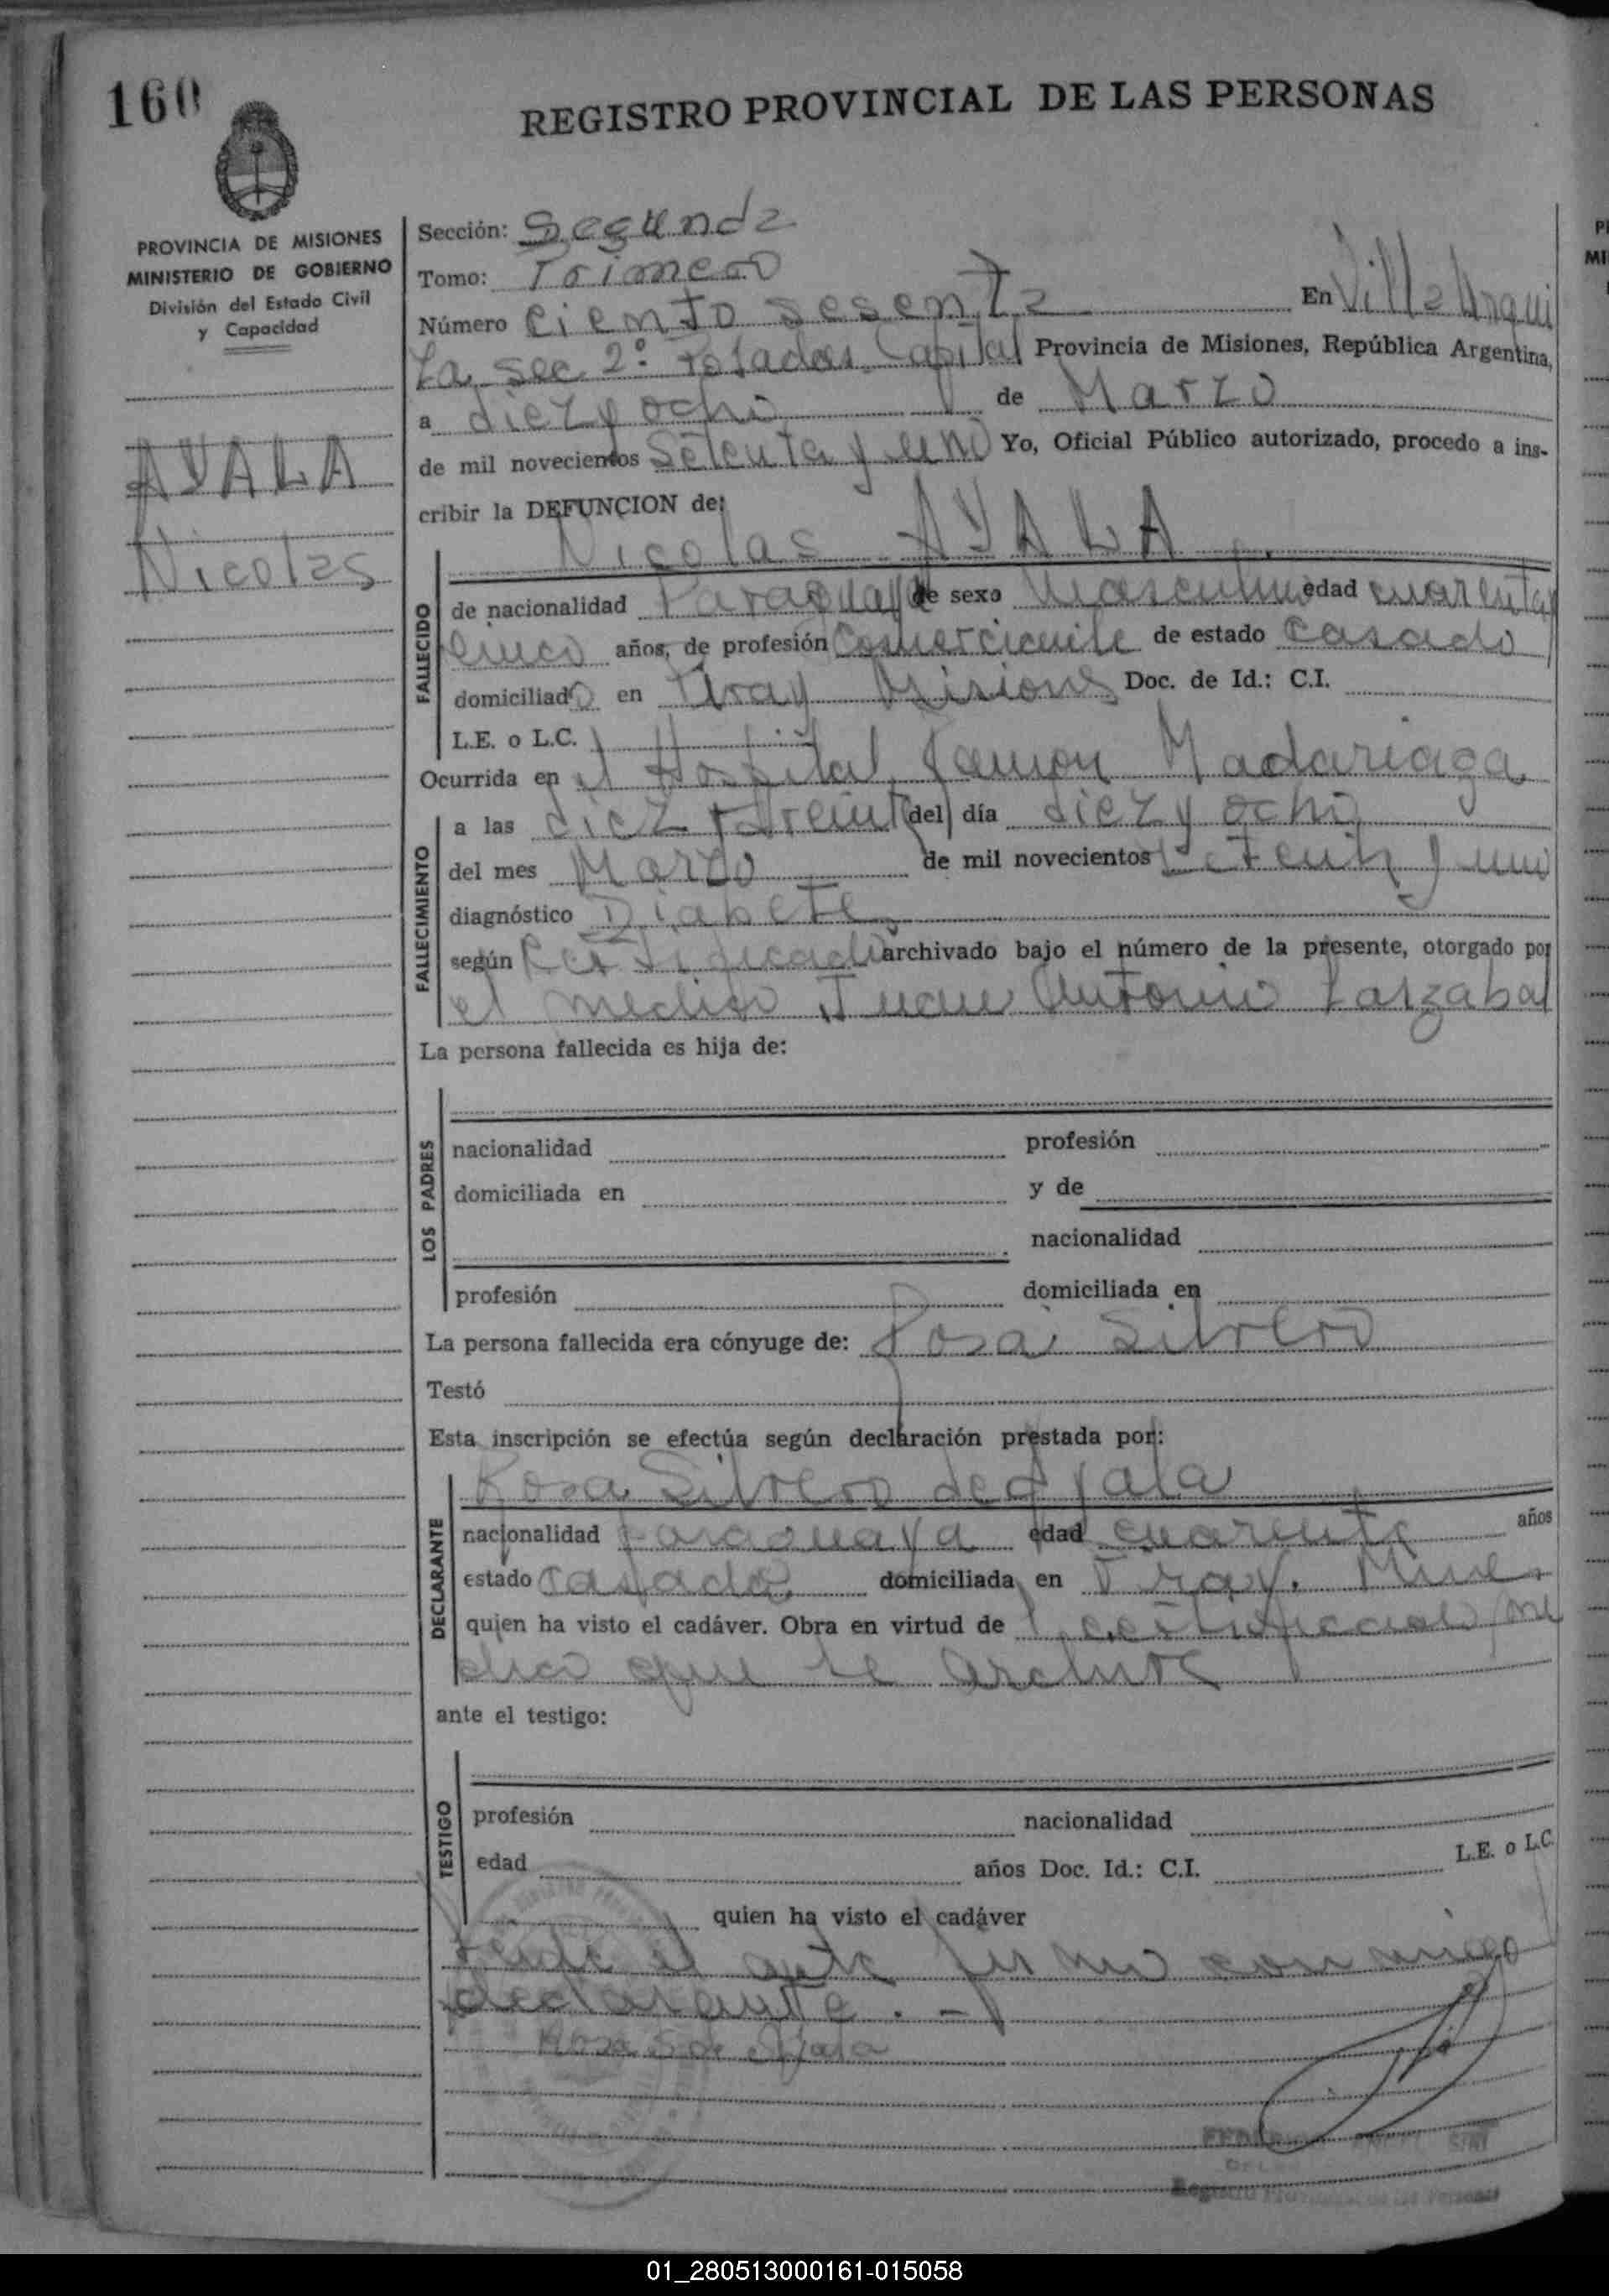 160
REGISTRO PROVINCIAL DE LAS PERSONAS
PROVINCIA DE MISIONES
MINISTERIO DE GOBIERNO
División del Estado Civil
y Capacidad
AYALA
Nicolas
Sección: Segunda
Tomo: Primero
Número Ciento sesenta En Villa Urqui
za sec 2º Posadas Capital Provincia de Misiones, República Argentina,
a diez y ocho de Marzo
de mil novecientos Setenta y uno Yo, Oficial Público autorizado, procedo a ins-
cribir la DEFUNCION de:
Nicolas AYALA
FALLECIDO
de nacionalidad Paraguaya de sexo Masculino edad cuarenta y
cinco años, de profesión Comerciante de estado Casado
domiciliado en Misiones Doc. de Id.: C.I.
L.E. o L.C.
Ocurrida en el Hospital Ramon Madariaga
FALLECIMIENTO
a las diez y treinta del día diez y ocho
del mes Marzo de mil novecientos setenta y uno
diagnóstico Diabete
según Certificado archivado bajo el número de la presente, otorgado por
el medico Juan Antonio Larzabal
La persona fallecida es hija de:
LOS PADRES
nacionalidad profesión
domiciliada en y de
nacionalidad
profesión domiciliada en
La persona fallecida era cónyuge de: Rosa Silvero
Testó
Esta inscripción se efectúa según declaración prestada por:
DECLARANTE
Rosa Silvero de Ayala
nacionalidad paraguaya edad cuarenta años
estado casada domiciliada en
quien ha visto el cadáver. Obra en virtud de certificado me
dico que se archiva
ante el testigo:
TESTIGO
profesión nacionalidad
edad años Doc. Id.: C.I. L.E. o L.C.
quien ha visto el cadáver
Leida el acta firma conmigo
declarante.-
Rosa S de Ayala
Registro Provincial de las Personas
01_280513000161-015058